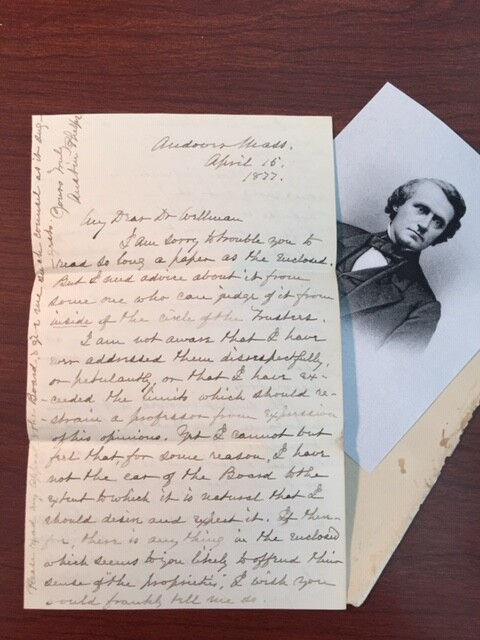 Andover Mass.
April 15.
1877.
My Dear Dr Wellman
I am sorry to trouble you to
read so long a paper as the enclosed.
But I need advice about it from
some one who can judge of it from
inside of the circle of the Trustees.
I am not aware that I have
ever addressed them disrespectfully,
or petulantly, or that I have ex-
ceeded the limits which should re-
strain a professor from expression
of his opinions. Yet I cannot but
feel that, for some reason, I have
not the ear of the Board to the
extent to which it is natural that I
should desire and expect it. If there-
fore, there is any thing in the enclosed
which seems to you likely to offend their
sense of the proprieties, I wish you
would frankly tell me so.
Please read my the Board, & give me such counsel as it sug-
gests. Yours truly
Austin Phelps